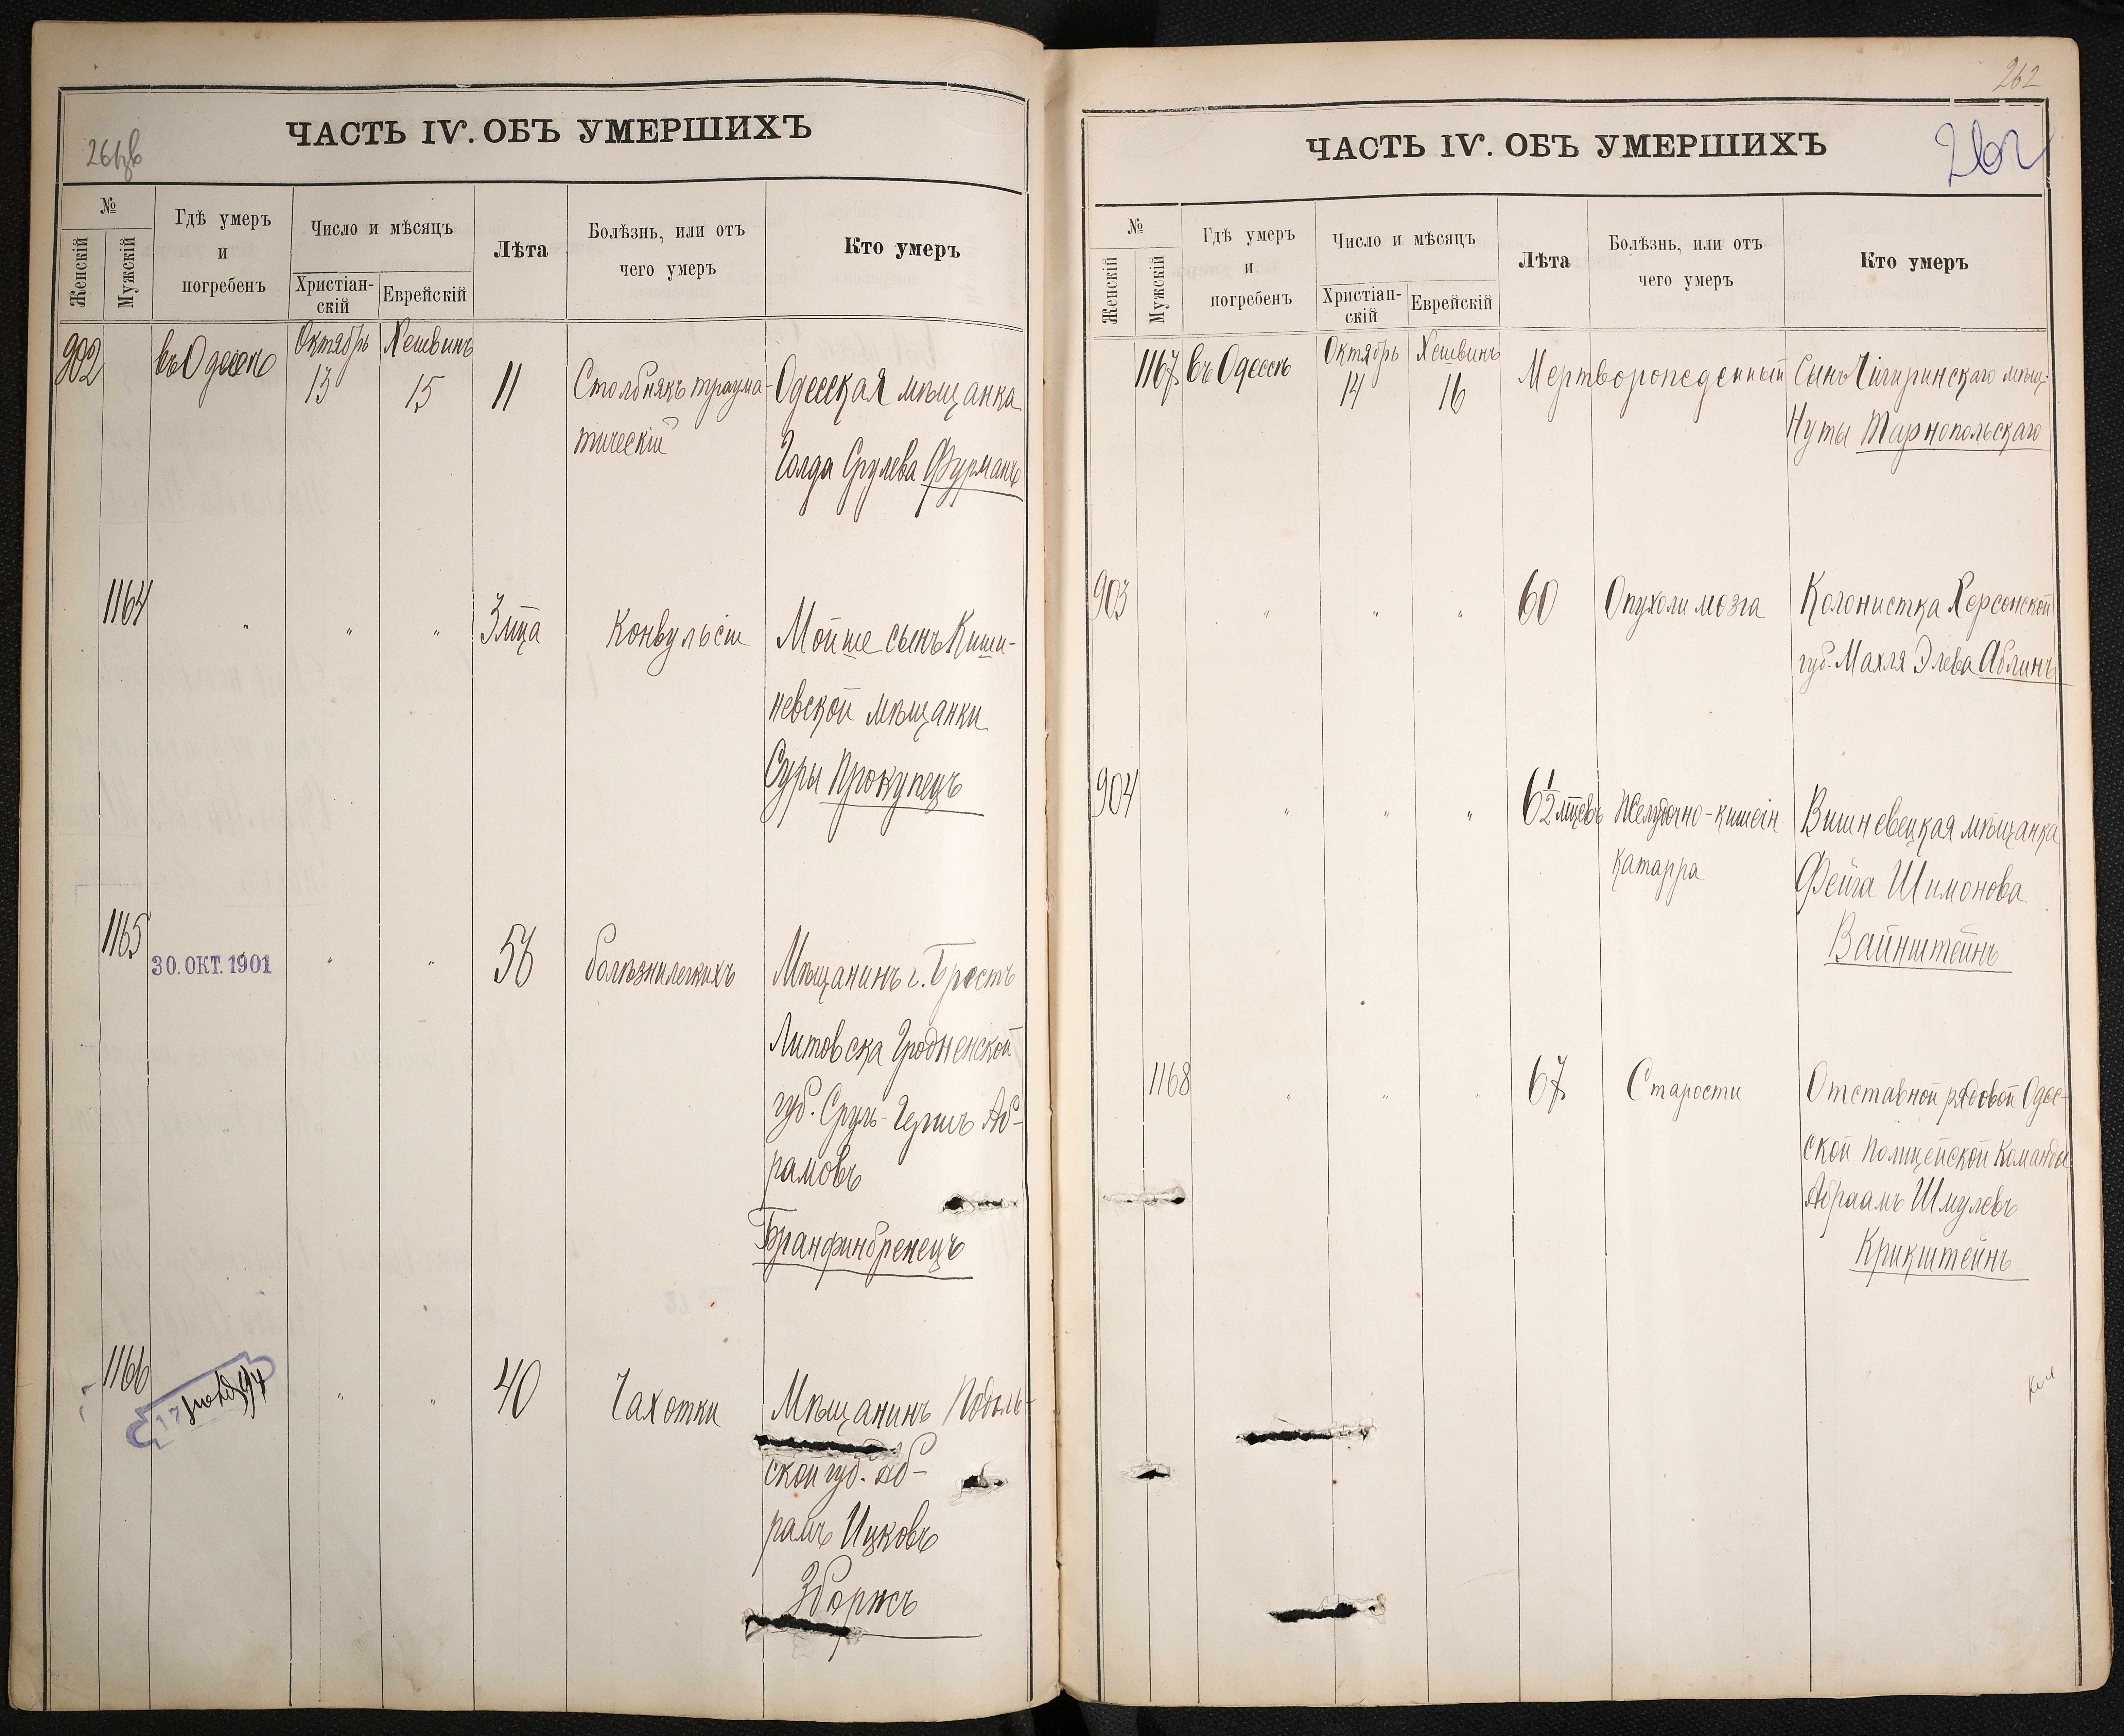 ЧАСТЬ IV. ОБЪ УМЕРШИХЪ
№
Женскій
Мужскій
Гдѣ умеръ
и
погребенъ
Число и мѣсяцъ
Христіан-
скій
Еврейскій
Лѣта
Болѣзнь, или отъ
чего умеръ
Кто умеръ
902 въ Одессѣ Октябрь Хешвинъ
13 15 11 Столбнякъ траума- Одесская мѣщанка
тическій Голда Срулева Фурманъ
1164 " " " 3 мца Конвульсіи Мойше сынъ Киши-
невской мѣщанки
Суры Прокупецъ
1165 30. ОКТ. 1901 " " 56 болѣзни легкихъ Мѣщанинъ г. Брестъ
Литовска Гродненской
губ. Сруль- Аб-
рамовъ
Бранфинбренецъ
1166 17 94 " " 40 Чахотки Мѣщанинъ Подоль-
ской губ. Аб-
рамъ Ицковъ
262
ЧАСТЬ IV. ОБЪ УМЕРШИХЪ
262
№
Женскій
Мужскій
Гдѣ умеръ
и
погребенъ
Число и мѣсяцъ
Христіан-
скій
Еврейскій
Лѣта
Болѣзнь, или отъ
чего умеръ
Кто умеръ
1167 въ Одессѣ Октябрь Хешвинъ
14 16 Мертворожденный Сынъ Чигиринскаго мѣщ.
Нуты Тарнопольскаго
903 " " " 60 Опухоли мозга Колонистка Херсонской
губ. Махля Элева Аблинъ
904 " " " 6 1/2 мцевъ Желудочно-кишечн Вишневецкая мѣщанка
катарра Фейга Шимонова
Вайнштейнъ
1168 " " " 67 Старости Отставной рядовой Одес-
ской Полицейской Команды
Абраамъ Шмулевъ
Крикштейнъ